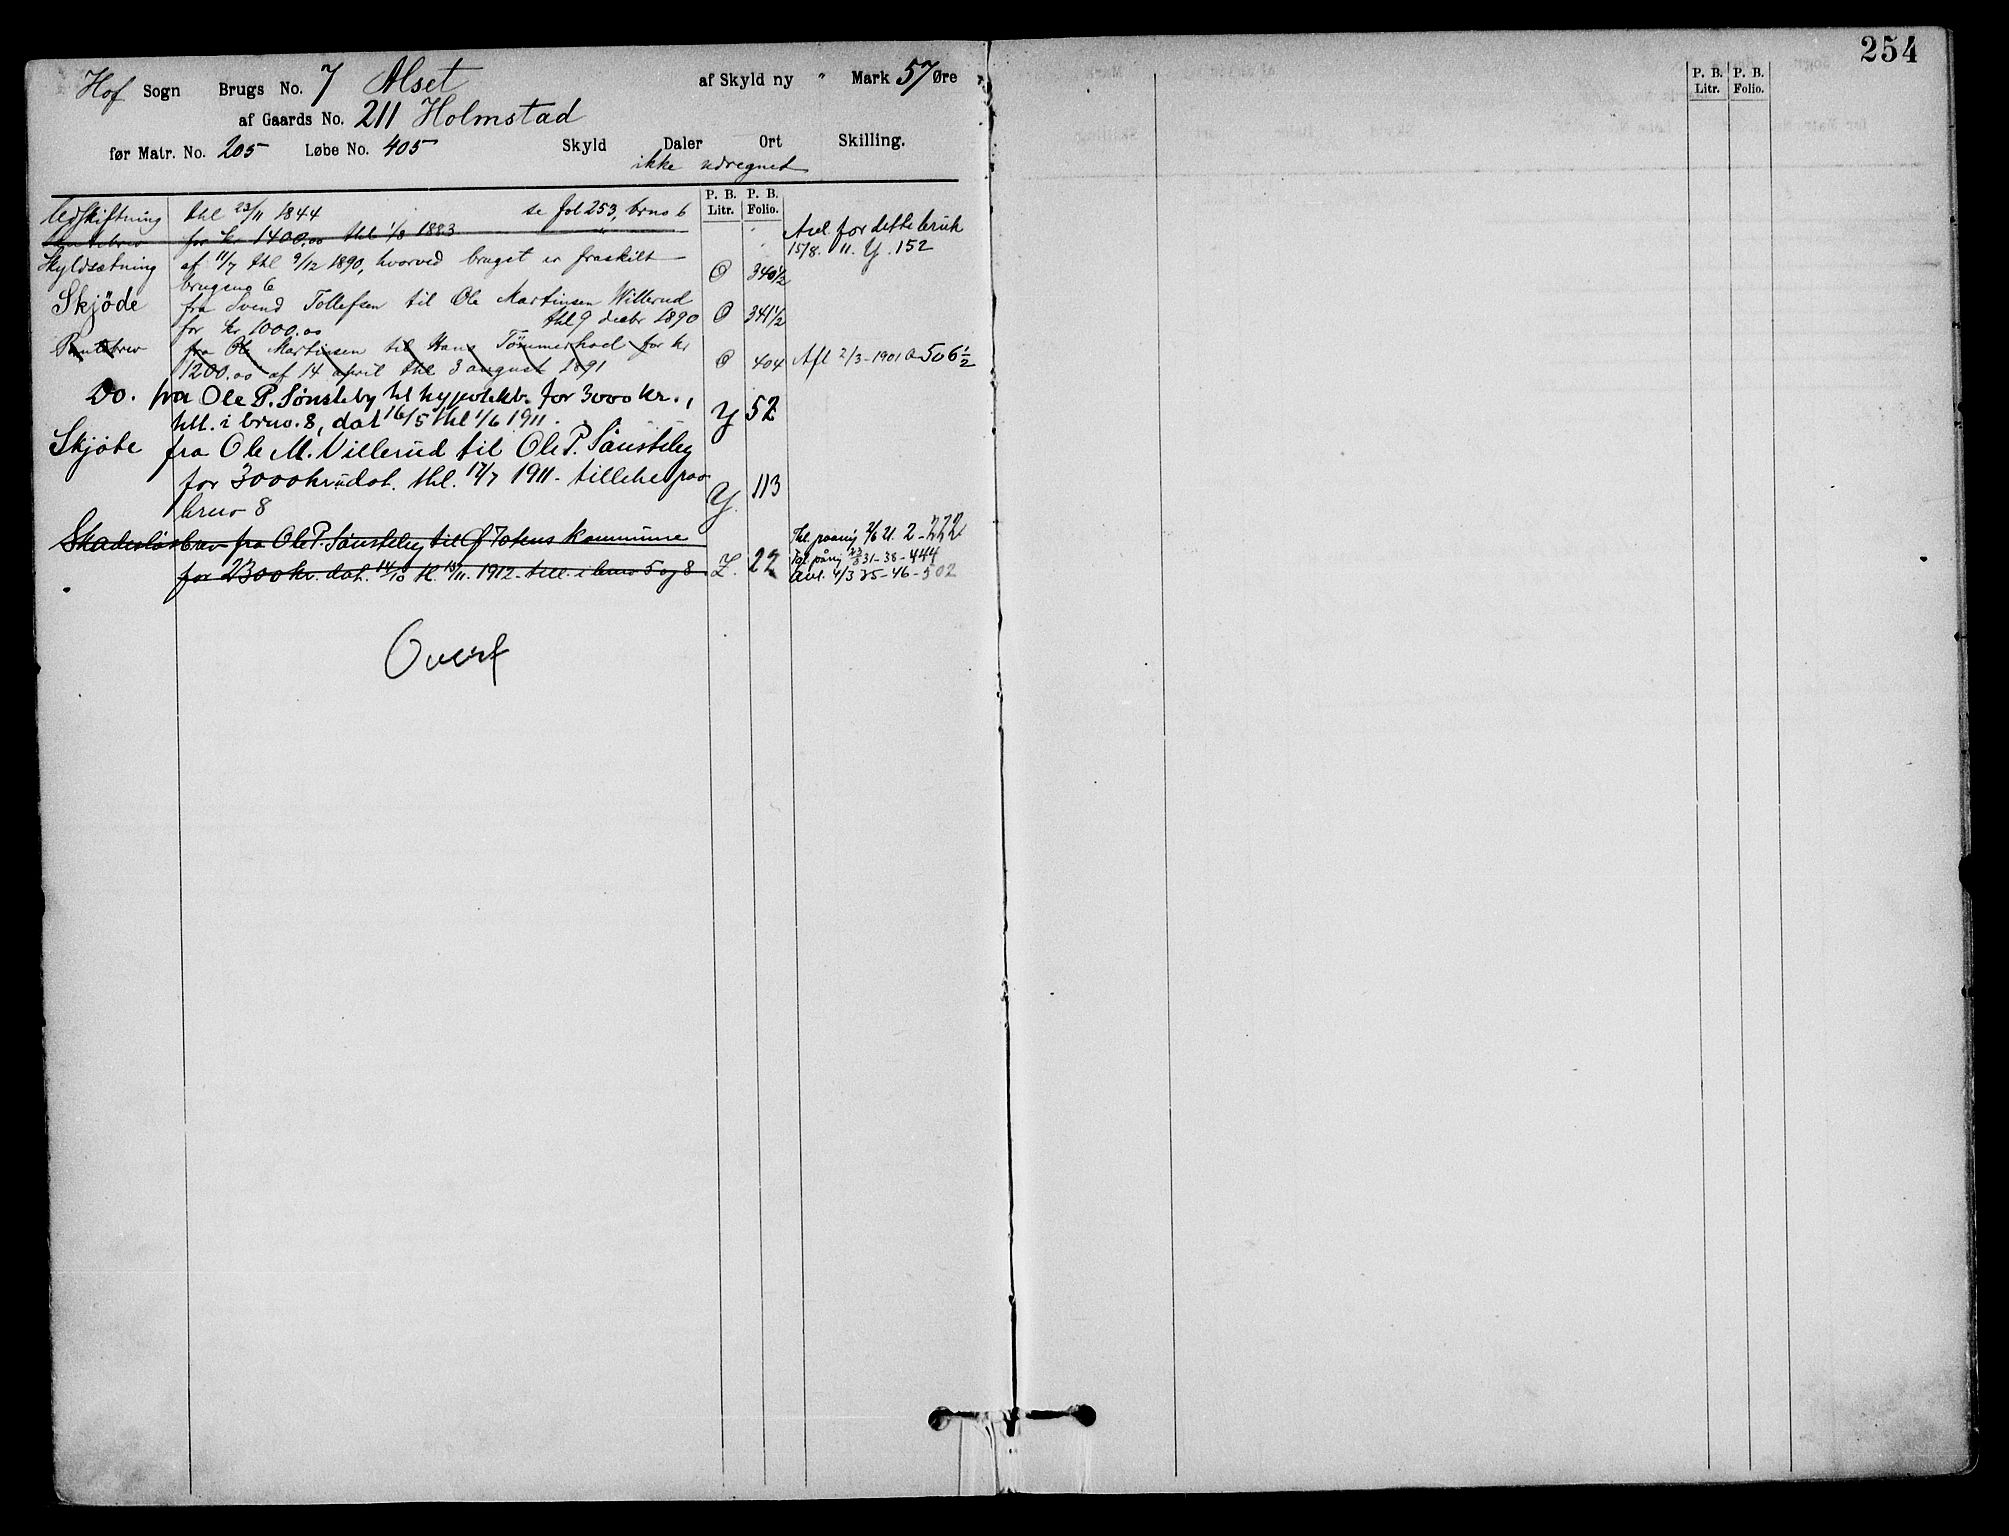 254
Hof Sogn Brugs No. 7 Alset af Skyld ny " Mark 57 Øre
af Gaards No. 211 Holmstad
før Matr. No. 205 Løbe No. 405 Skyld Daler Ort Skilling.
ikke udregnet
P. B. Litr. P. B. Folio.
P. B. Litr. P. B. Folio.
Udskiftning thl 23/11 1844 se fol 253, brno 6
Pantebrev for kr 1400.00 thl 1/8 1883 "
Avl. for dette bruk
15/8. 11. Y. 152
Skyldsætning af 11/7 thl 9/12 1890, hvorved bruget er fraskilt
brugsno 6 O 340 1/2
Skjöde fra Svend Tollefsen til Ole Martinsen Willerud
for kr 1000.00 thl 9 decbr 1890 O 341 1/2
Pantebrev fra Ole Martinsen til Hans Tömmerhol for kr
1200.00 af 14 april thl 3 august 1891 O 404 Afl 2/3-1901 506 1/2
Do. fra Ole P. Sønsteby til hypotekb. for 3000 kr.,
till. i brno. 8, dat 16/5 thl 1/6 1911. Y 52
Skjöte fra Ole M. Villerud til Ole P. Sönsteby
for 3000 kr udat. thl. 17/7 1911 - tillike paa
brno 8 Y. 113
Skadesløsbrev fra Ole P. Sönsteby til Ø Totens kommune
for 2300 kr. dat. 14/10 tl. 15/11. 1912 - till. i brno 5 og 8. Z. 22
Thl. paategn 2/6 21. 2-222
Tgl. påtegn 23/8 31-38-444
Avl. 4/3 35-46-502
Overf